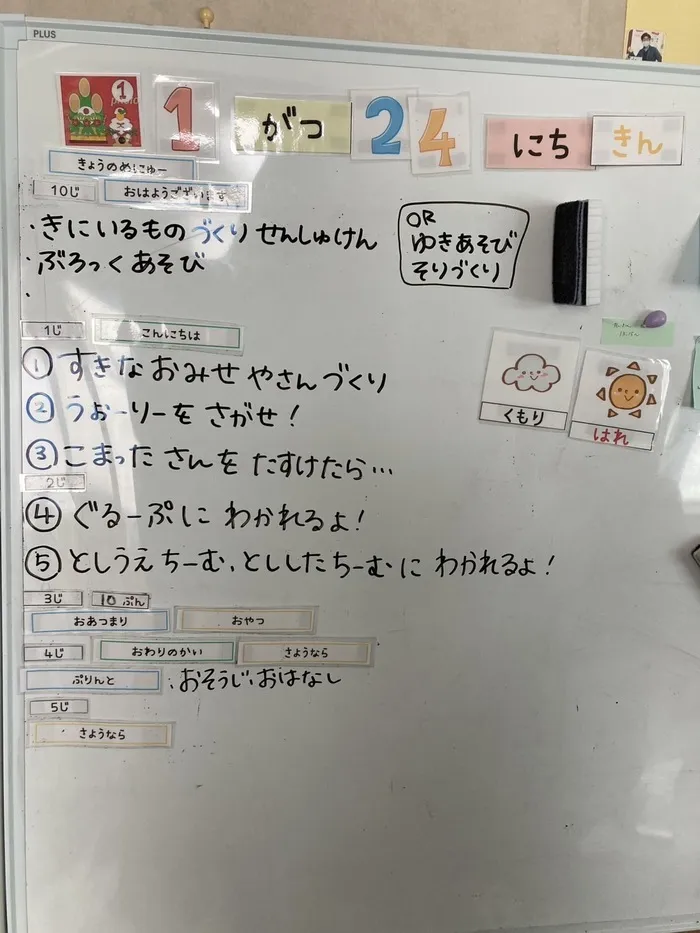 PLUS
1
1 がつ 24 にち きん
きょうのめにゅー
10じ おはようございます
・きにいるものづくりせんしゅけん
・ぶろっくあそび
・
OR
ゆきあそび
そりづくり
1じ こんにちは
① すきなおみせやさんづくり
② うぉーりーをさがせ!
③ こまったさんをたすけたら…
2じ
④ ぐるーぷにわかれるよ!
⑤ としうえちーむ、とししたちーむにわかれるよ!
くもり
はれ
3じ 10ぷん
おあつまり おやつ
4じ おわりのかい さようなら
ぷりんと ・おそうじ・おはなし
5じ
さようなら